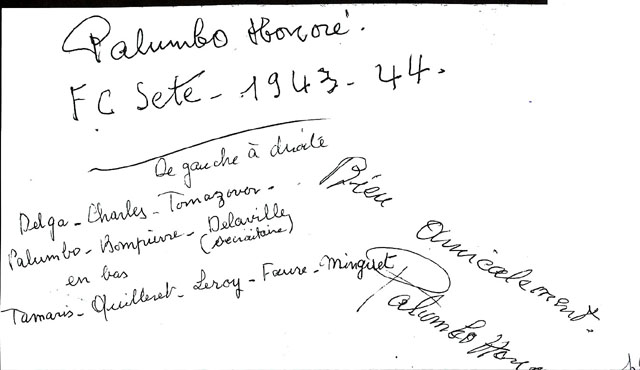 Palumbo Honoré.
FC Sete - 1943 - 44.
De gauche à droite
Delga - Charles - Tomazover -
Palumbo - Bompierre - Delaville
(secrétaire)
en bas
Tamaris - Quilleret - Leroy - Faure - Minguet
Bien amicalement.
Palumbo Honor